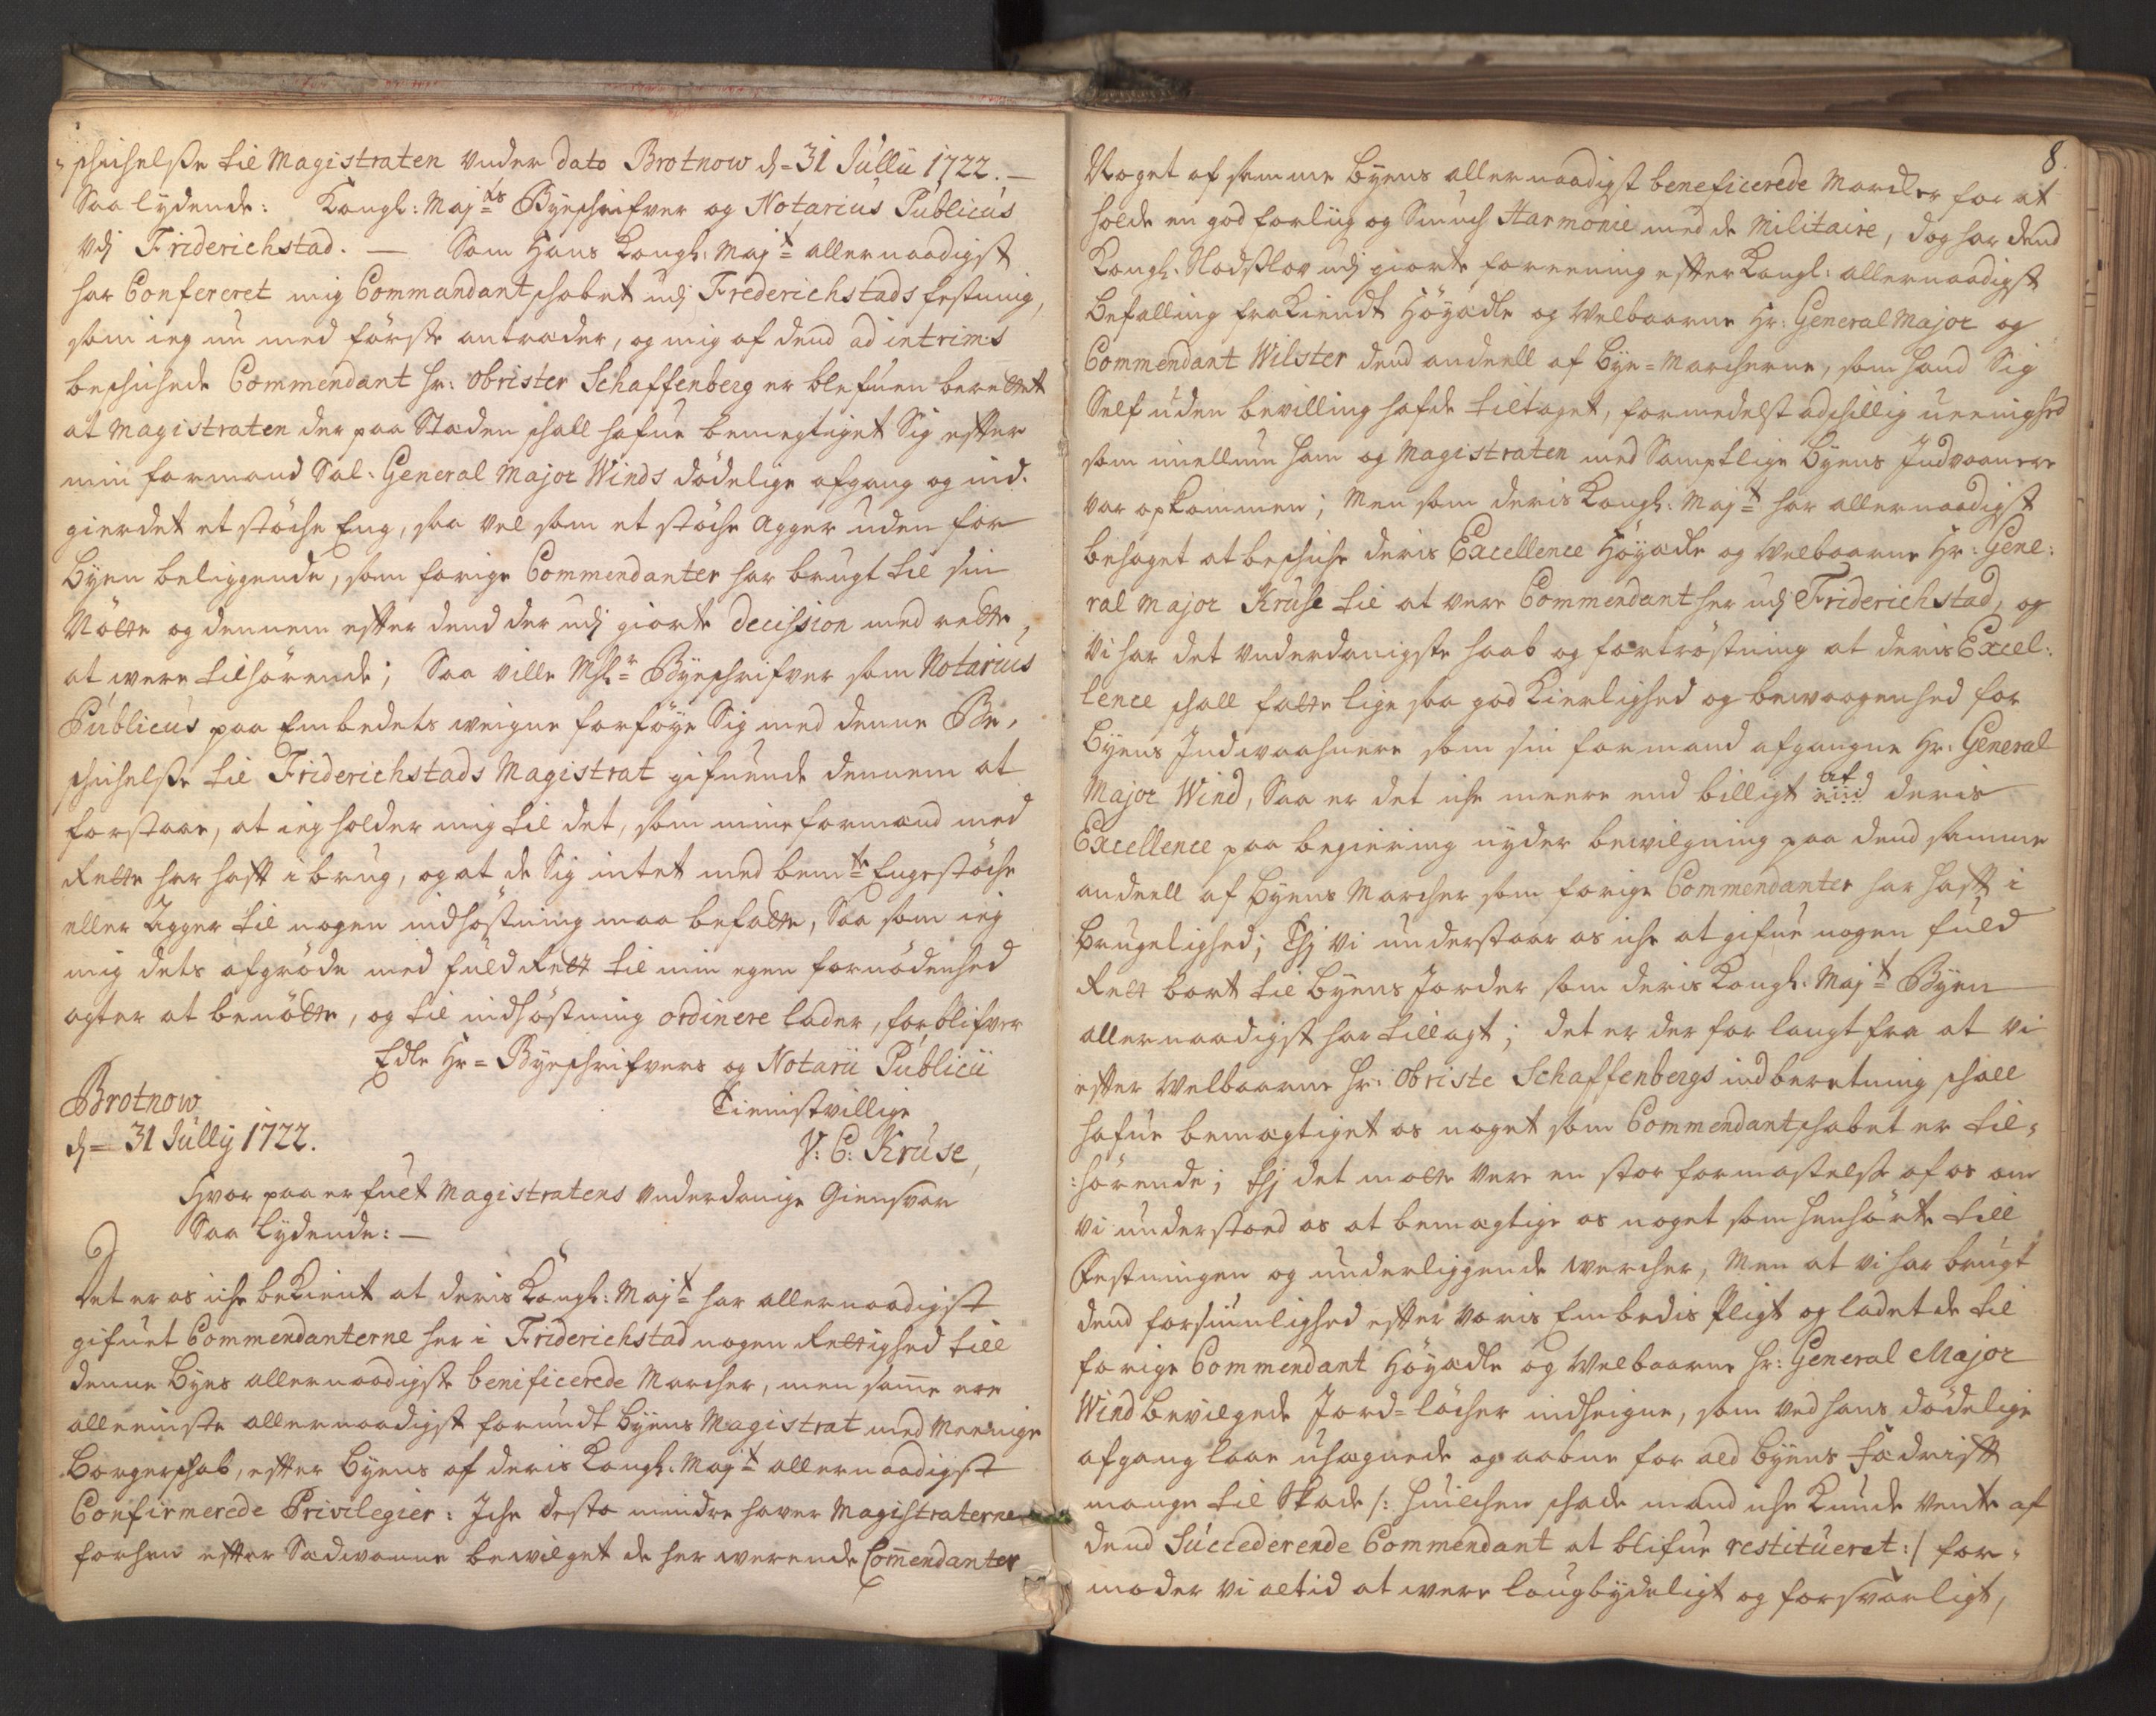 schichelsse til Magistraten under dato Brotnow d= 31 Jullii 1722. —
Saa lydende: Kongl: Majts Byeschrifver og Notarius Publicus
udj Friderichstad. — Som Hans Kongl: Majt allernaadigst
har Confereret mig Commandantschabet udj Frederichstads festning,
som ieg nu med förste antræder, og mig af dend ad intrims
beschichede Commendant Hr: Obrister Schaffenberg er blefuen berettet
at Magistraten der paa Staden schall hafue bemegtiget Sig efter
min formand Sal: General Major Winds dödelige afgang og ind-
gierdet et støche Eng, saa vel som et støche Agger uden for
Byen beliggende, som forige Commendanter har brugt til sin
Nötte og dennem efter dend der udj giorte decission med rette,
at were tilhörende; Saa ville Mshr= Byeschrifver som Notarius
Publicus paa Embedets weigne forföye Sig med denne Be-
schichelsse til Friderichstads Magistrat gifuende dennem at
forstaae, at ieg holder mig til det, som mine formænd med
Rette har haft i brug, og at de Sig intet med bemte Engestöche
eller Agger til nogen indhöstning maa befatte, Saa som ieg
mig dets afgröde med fuld Rett til min egen fornödenhed
agter at benötte, og til indhöstning ordinere lader, forblifver
Edle Hr= Byeschrifvers og Notarii Publicii
Brotnow Tienistvillige
d= 31 Jullij 1722. V: C: Kruse,
Hvor paa er fult Magistratens underdanige Giensvar
Saa lydende: —
Det er os iche bekient at deris Kongl: Majt har allernaadigst
gifuet Commendanterne her i Friderichstad nogen Rettighed till
denne Byes allernaadigste benificerede Marcher, men same ere
alleeniste allernaadigst forundt byens Magistrat med Meenige
Borgerschab, efter byens af deris Kongl: Majt allernaadigst
Confirmerede Privilegier: Iche desto mindre haver Magistraterne
forhen efter Sædvanne bewilget de her werende Comendanter
8.
Noget af samme byens allernaadigst beneficerede Marcker for at
holde en god forliig og Smuch Harmonie med de Militaire, dog har dend
Kongl: Slodsslov udj giorte foreening efter Kongl: allernaadigst
Befalling frakiendt Höyædle og Welbaarne Hr: General Major og
Commendant Wilster dend andeell af Bye=Marcherne, som hand Sig
Self uden bevilling hafde tiltaget, formedelst adschillig ueenighed
som imellum ham og Magistraten med Samptlige byens Indvaanere
var opkommen; Men som deris Kongl: Majt har allernaadigst
behaget at beschiche deris Excellence Höyædle og Welbaarne Hr: Gene:
ral Major Kruse til at vere Commendant her udj Friderichstad, og
vi har det underdanigste haab og fortröstning at deris Excel:
lence schall fatte lige saa god Kierlighed og bewaagenhed for
Byens Indwaahnere som sin formand afgangne Hr: General
Major Wind, Saa er det iche meere end billigt at end deris
Excellence paa begiering nyder bewilgning paa dend samme
andeell af byens Marcher som forige Commendanter har haft i
brugelighed; Thj vi understaar os iche at gifue nogen fuld
Rett bort til byens Jorder som deris Kongl: Majt Byen
allernaadigst har tillagt; det er der for langt fra at vi
efter Welbaarne Hr: Obriste Schaffenbergs indberetning schall
hafue bemægtiget os noget som Commendantschabet er til-
:hörende; thj det motte vere en stor formastelsse af os om
vi understoed os at bemægtige os noget som henhörte till
Festningen og underliggende wercher, Men at vi har brugt
dend forsiunlighed efter voris Embedis Pligt og ladet de til
forige Commendant Höyædle og Welbaarne Hr: General Major
Wind bevilgede Jord=löcher indheigne, som ved hans dödelige
afgang laae uhægnede og aabne for ald byens fædrift
mange til Skade /: huilchen schade mand iche kunde vente af
dend Succederende Commendant at blifue restitueret :/ for-
moder vi altid at were laugbydeligt og forsvarligt,